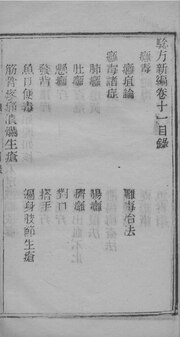 驗方新編卷十一目錄
癰毒
癰疽論
癰毒諸症
癰毒治法
肺癰
腸癰
肚癰
臍癰
懸癰
對口
發背
搭手
魚口便毒
遍身肢節生瘡
筋骨疼痛潰爛生瘡